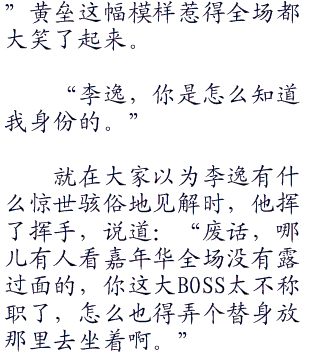 ”黄垒这幅模样惹得全场都
大笑了起来。
“李逸，你是怎么知道
我身份的。”
就在大家以为李逸有什
么惊世骇俗地见解时，他挥
了挥手，说道：“废话，哪
儿有人看嘉年华全场没有露
过面的，你这大BOSS太不称
职了，怎么也得弄个替身放
那里去坐着啊。”